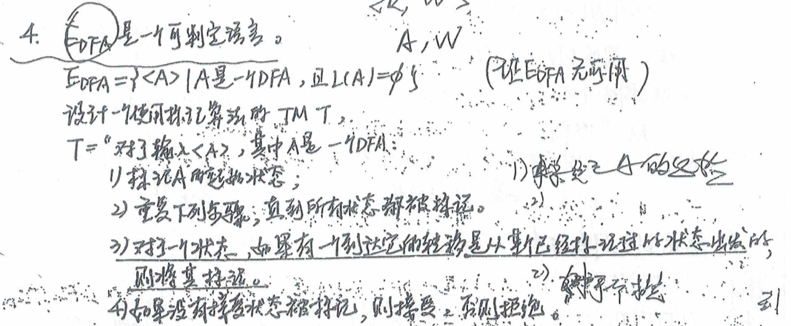 4. E_DFA是一个可判定语言。
A, W
E_DFA={<A>|A是一个DFA,且L(A)=φ}
设计一个使用标记算法的TM T,
T="对于输入<A>,其中A是一个DFA:
1) 标记A的起始状态;
2) 重复下列步骤,直到所有状态都被标记。
3) 对于一个状态,如果有一个到达它的转移是从某个已经标记过的状态出发的,
则将其标记。
4) 如果没有接受状态被标记,则接受。否则拒绝。